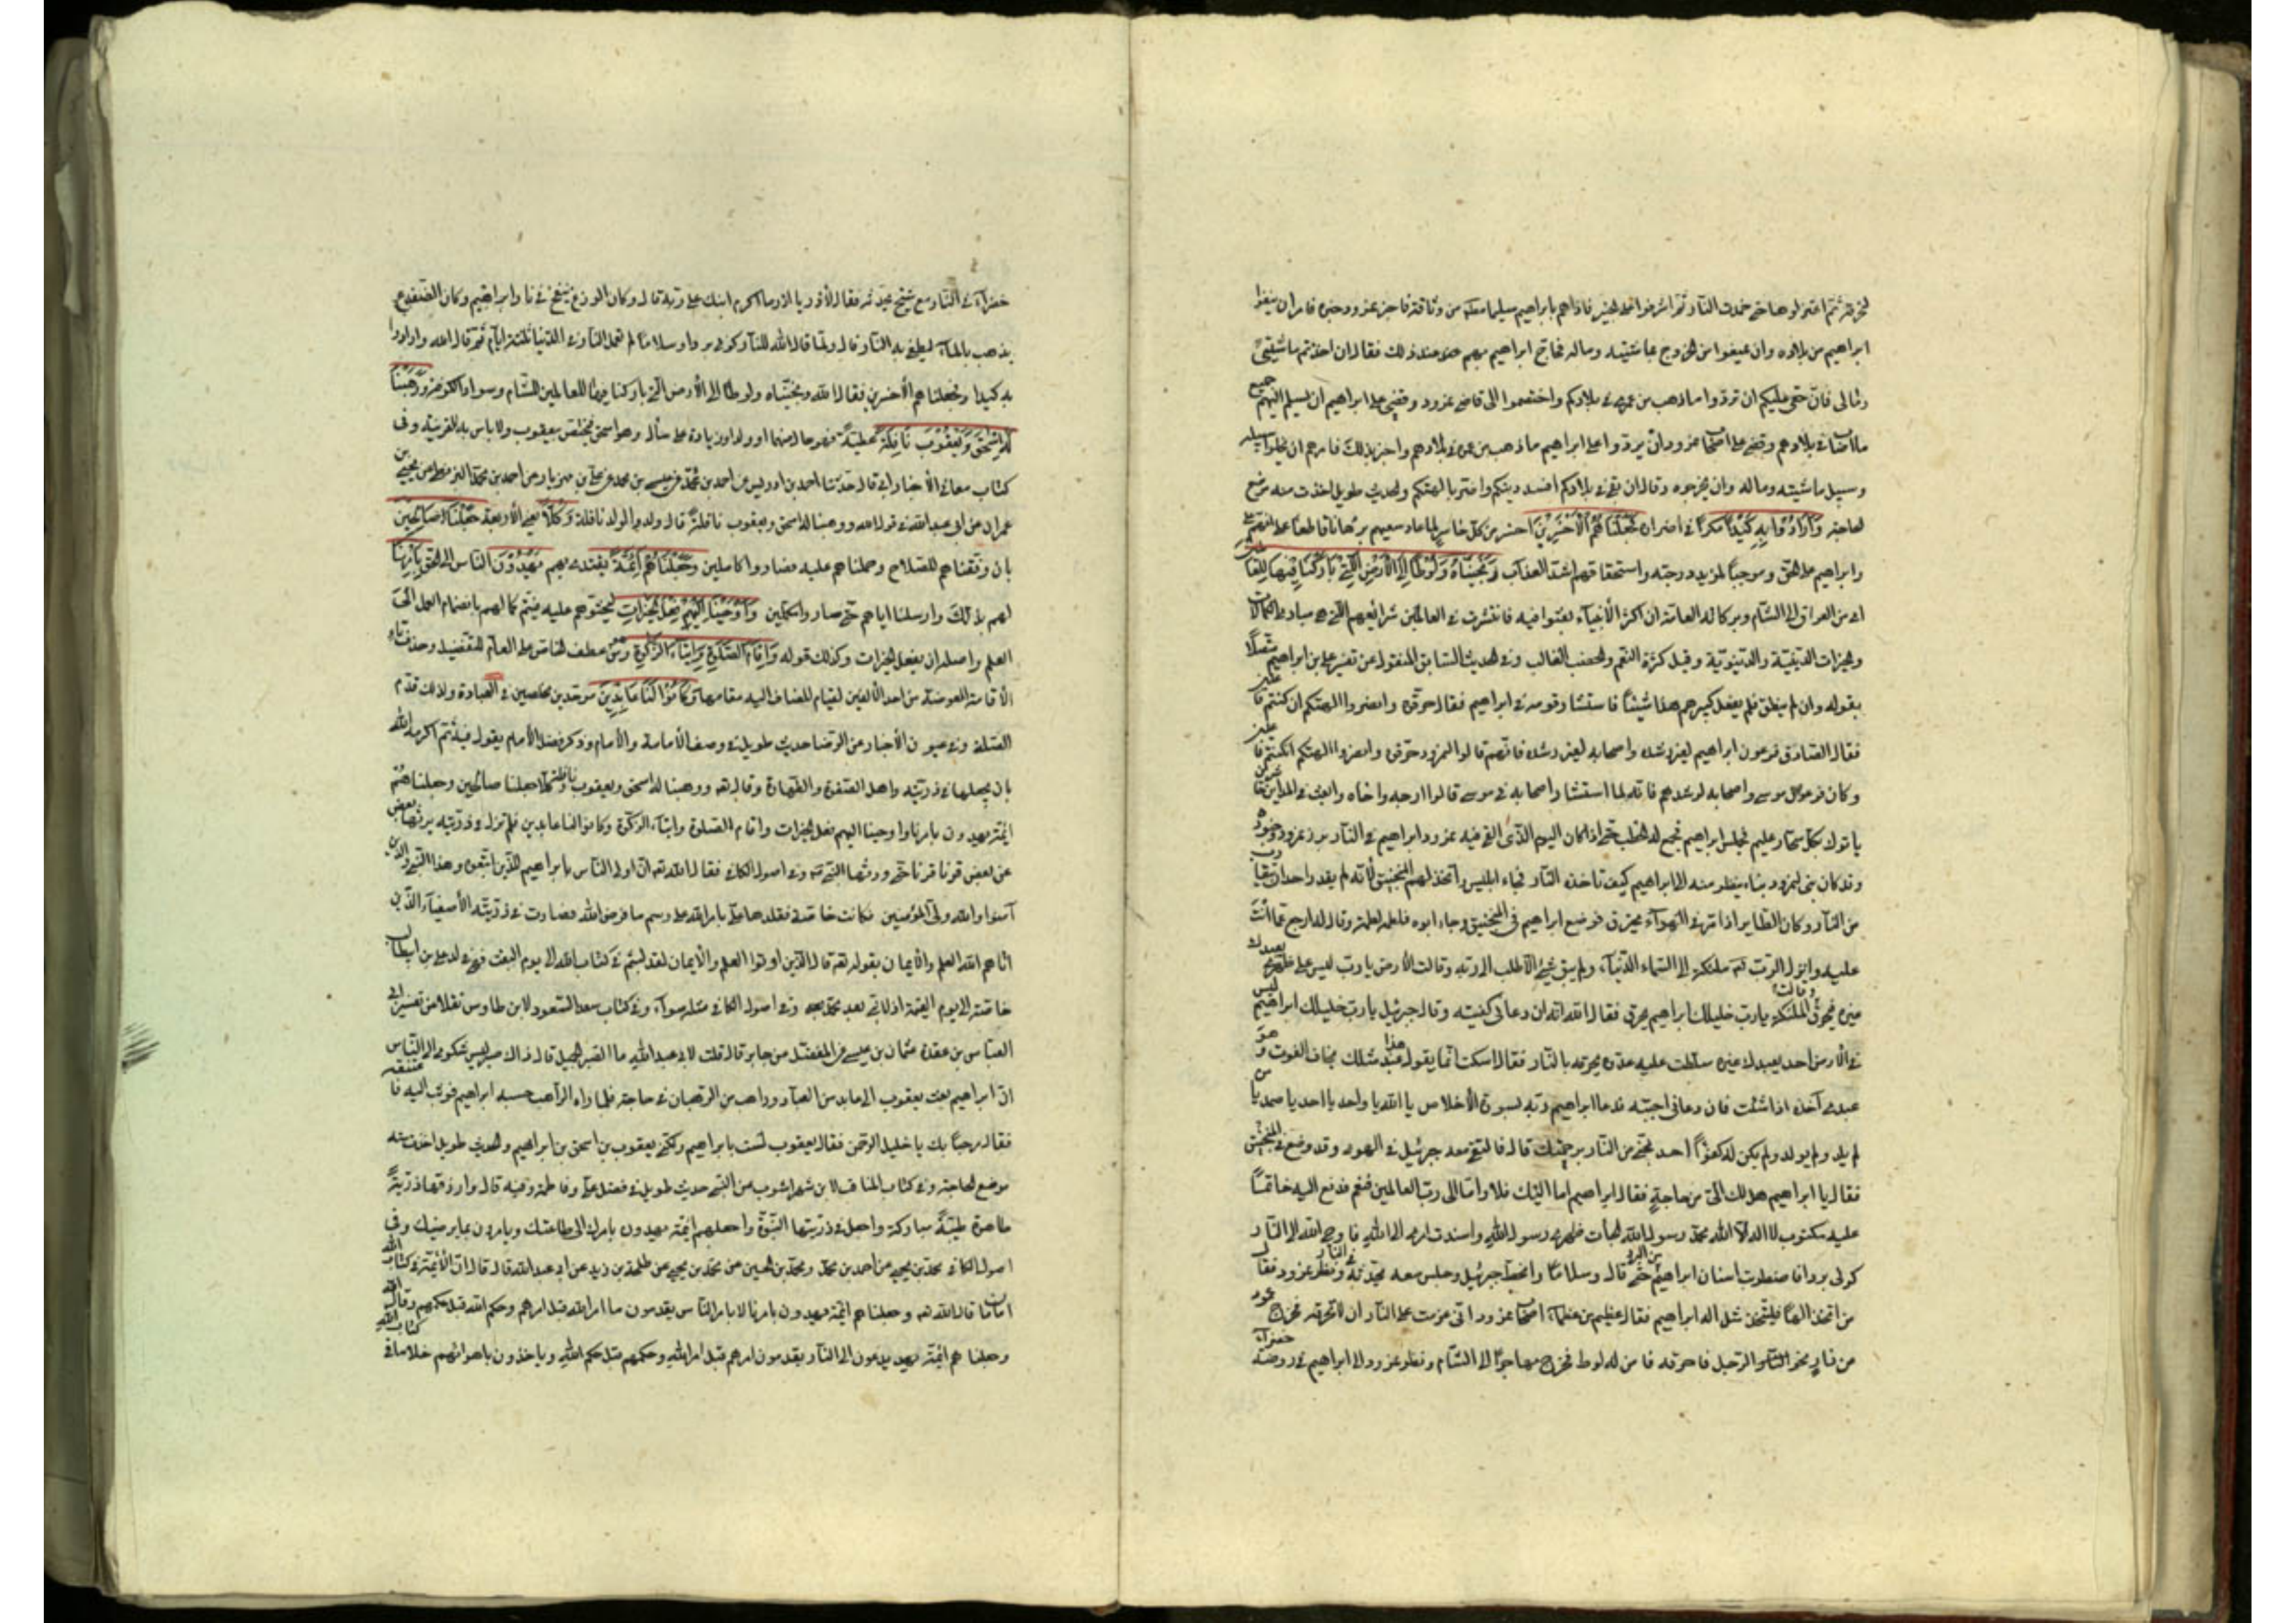 ليحرقه ثم اعتزلوها حتى خمدت النار ثم اشرفوا على الحير فاذا هم بابراهيم سليما مطلقا من وثاقه فاخبر نمرود خبره فامر ان ينفوا
ابراهيم من بلاده وان يمنعوا من الخروج بماشيته وماله فحاج ابراهيم بهم عند ذلك فقال ان اخذتم ماشيتي
ومالى فان حقى عليكم ان تردوا ما ذهب من عمرى فى بلادكم واختصموا الى قاضى نمرود وقضى على ابراهيم ان يسلم اليهم جميع
ما اصاب فى بلادهم وقضى على اصحاب نمرود ان يردوا على ابراهيم ما ذهب من عمره فى بلادهم واخبر بذلك فامرهم ان يخلوا سبيله
وسبيل ماشيته وماله وان يخرجوه وقال ان بقى فى بلادكم افسد دينكم واضر بالهتكم والحديث طويل اخذت منه موضع
الحاجة وَاَرَادُوا بِهِ كَيْدًا مكرا فى اضراره فَجَعَلْنَاهُمُ الْاَخْسَرِينَ اخسر من كل خاسر لما عاد سعيهم برهانا قاطعا على انهم على
وابراهيم على الحق وموجبا لمزيد درجته واستحقاقهم اشد العذاب وَنَجَّيْنَاهُ وَلُوطًا اِلَى الْاَرْضِ الَّتِى بَارَكْنَا فِيهَا لِلْعَالَمِينَ
اى من العراق الى الشام وبركاته العامة ان اكثر الانبياء بعثوا فيه فانتشرت فى العالمين شرائعهم التى هى مبادى الكمالات
والخيرات الدينية والدنيوية وقيل كثرة النعم والخصب الغالب وفى الحديث السابق المنقول عن تفسير على بن ابراهيم متصلا
بقوله وان لم ينطق فلم يفعل كبيرهم هذا شيئا فاستشار قومه فى ابراهيم فقالوا حرقوه وانصروا الهتكم ان كنتم فاعلين
فقال الصادق فرعون ابراهيم لغير رشده واصحابه لغير رشده فانهم قالوا لنمرود حرقوه وانصروا الهتكم ان كنتم فاعلين
وكان فرعون موسى واصحابه لرشدهم فانه لما استشار اصحابه فى موسى قالوا ارجه واخاه وابعث فى المداين حاشرين
ياتوك بكل سحار عليم فحبس ابراهيم وجمع له الحطب حتى اذا كان اليوم الذى القى فيه نمرود ابراهيم فى النار برز نمرود وجنوده
وقد كان بنى لنمرود بناء ينظر منه الى ابراهيم كيف تاخذه النار فجاء ابليس واتخذ لهم المنجنيق لانه لم يقدر احد ان يتقارب
من النار وكان الطاير اذا مر فى الهواء يحترق فوضع ابراهيم فى المنجنيق وجاء ابوه فلطمه لطمة وقال له ارجع عما انت
عليه وانزل الرب ملئكته الى السماء الدنيا ولم يبق شىء الا طلب الى ربه وقالت الارض يا رب ليس على ظهرى احد يعبدك
غيره فيحرق وقالت الملئكة يا رب خليلك ابراهيم يحرق فقال الله انه ان دعانى كفيته وقال جبرئيل يا رب خليلك ابراهيم ليس
فى الارض احد يعبدك غيره سلطت عليه عدوه يحرقه بالنار فقال اسكت انما يقول هذا عبد مثلك يخاف الفوت هو
عبدى آخذه اذا شئت فان دعانى اجبته فدعا ابراهيم ربه بسورة الاخلاص يا الله يا واحد يا احد يا صمد يا من
لم يلد ولم يولد ولم يكن له كفوا احد نجنى من النار برحمتك قال فالتقى معه جبرئيل فى الهواء وقد وضع فى المنجنيق
فقال يا ابراهيم هل لك الىّ من حاجة فقال ابراهيم اما اليك فلا واما الى رب العالمين فنعم فدفع اليه خاتما
عليه مكتوب لا اله الا الله محمد رسول الله الجأت ظهرى الى الله واسندت امرى الى الله فاوحى الله الى النار
كونى بردا فاضطربت اسنان ابراهيم من البرد حتى قال وسلاما وانحط جبرئيل وجلس معه يحدثه فى النار ونظر نمرود فقال
من اتخذ الها فليتخذ مثل اله ابراهيم فقال عظيم من عظماء اصحاب نمرود انى عزمت على النار ان لا تحرقه فخرج عمود
من نار نحو الرجل فاحرقه فامن له لوط فخرج مهاجرا الى الشام ونظر نمرود الى ابراهيم فى روضة خضراء
خضراء فى النار مع شيخ يحدثه فقال لآزر يا آزر ما اكرم ابنك على ربه قال وكان الوزغ ينفخ فى نار ابراهيم وكان الضفدع
يذهب بالماء ليطفى به النار قال ولما قال الله للنار كونى بردا وسلاما لم تعمل النار فى الدنيا ثلثة ايام ثم قال الله وارادوا
به كيدا وجعلناهم الاخسرين فقال الله ونجيناه ولوطا الى الارض التى باركنا فيها للعالمين الشام وسواد الكوفة وَوَهَبْنَا
لَهُ اِسْحٰقَ وَيَعْقُوبَ نَافِلَةً عطية فهو حال منهما او ولد او زيادة على ما سأل وهو اسحق فيختص بيعقوب ولا باس به للقرينة وفى
كتاب معانى الاخبار ابى قال حدثنا احمد بن ادريس عن احمد بن محمد بن عيسى بن محمد عن على بن مهزيار عن احمد بن محمد البزنطى عن يحيى بن
عمران عن ابى عبد الله فى قول الله ووهبنا له اسحق ويعقوب نافلة قال ولد الولد نافلة وَكُلًّا يعنى الاربعة جَعَلْنَا صَالِحِينَ
بان وفقناهم للصلاح وحملناهم عليه فصاروا كاملين وَجَعَلْنَاهُمْ اَئِمَّةً يقتدى بهم يَهْدُونَ الناس الى الحق بِاَمْرِنَا
لهم بذلك وارسلنا اياهم حتى صاروا مكملين وَاَوْحَيْنَا اِلَيْهِمْ فِعْلَ الْخَيْرَاتِ ليحثوهم عليه فيتم كمالهم بانضمام العمل الى
العلم واصله ان يفعل الخيرات وكذلك قوله وَاِقَامَ الصَّلٰوةِ وَاِيتَاءَ الزَّكٰوةِ وهو من عطف الخاص على العام للتفضيل وحذف تاء
الاقامة المعوضة من احدى الالفين لقيام المضاف اليه مقامها وَكَانُوا لَنَا عَابِدِينَ موحدين مخلصين فى العبادة ولذلك قدم
الصلة وفى عيون الاخبار عن الرضا حديث طويل فى وصف الامامة والامام وذكر فضل الامام يقول فيه ثم اكرمه الله
بان يجعلها فى ذريته واهل الصفوة والطهارة وقال الله ووهبنا له اسحق ويعقوب نافلة وكلا جعلنا صالحين وجعلناهم
ائمة يهدون بامرنا واوحينا اليهم فعل الخيرات واقام الصلوة وايتاء الزكوة وكانوا لنا عابدين فلم تزل فى ذريته يرثها بعض
عن بعض قرنا قرنا حتى ورثها النبى وفى اصول الكافى فقال الله ان اولى الناس بابراهيم للذين اتبعوه وهذا النبى والذين
آمنوا والله ولى المؤمنين فكانت خاصة فقلدها عليا بامر الله على رسم ما فرض الله فصارت فى ذريته الاصفياء الذين
اتاهم الله العلم والايمان بقوله قال الذين اوتوا العلم والايمان لقد لبثتم فى كتاب الله الى يوم البعث فهى فى ولد على بن ابيطالب
خاصة الى يوم القيمة اذ لا نبى بعد محمد وفى اصول الكافى مثله سواء وفى كتاب سعد السعود لابن طاوس نقلا من تفسير ابى
العباس بن عقدة عثمان بن عيسى عن المفضل عن جابر قال قلت لابى عبد الله ما الصبر الجميل قال ذاك صبر ليس شكوى الى الناس
ان ابراهيم بعث يعقوب الى عابد من العباد وراهب من الرهبان فى حاجة فلما راه الراهب حسبه ابراهيم فوثب اليه فاعتنقه
فقال مرحبا بك يا خليل الرحمن فقال يعقوب لست بابراهيم ولكنى يعقوب بن اسحق بن ابراهيم والحديث طويل اخذت منه
موضع الحاجة وفى كتاب المناقب لابن شهراشوب عن النبى حديث طويل فى فضل على وفاطمة وفيه قال وارزقهما ذرية
طاهرة طيبة مباركة واجعل فى ذريتهما النبوة واجعلهم ائمة يهدون بامرك الى طاعتك ويامرون بما يرضيك وفى
اصول الكافى محمد بن يحيى عن احمد بن محمد ومحمد بن الحسين عن محمد بن يحيى عن طلحة بن زيد عن ابى عبد الله قال قال ان الائمة فى كتاب الله
امامان قال الله وجعلناهم ائمة يهدون بامرنا لا بامر الناس يقدمون ما امر الله قبل امرهم وحكم الله قبل حكمهم وقال
وجعلناهم ائمة يدعون الى النار يقدمون امرهم قبل امر الله وحكمهم قبل حكم الله وياخذون باهوائهم خلاف ما فى كتاب الله